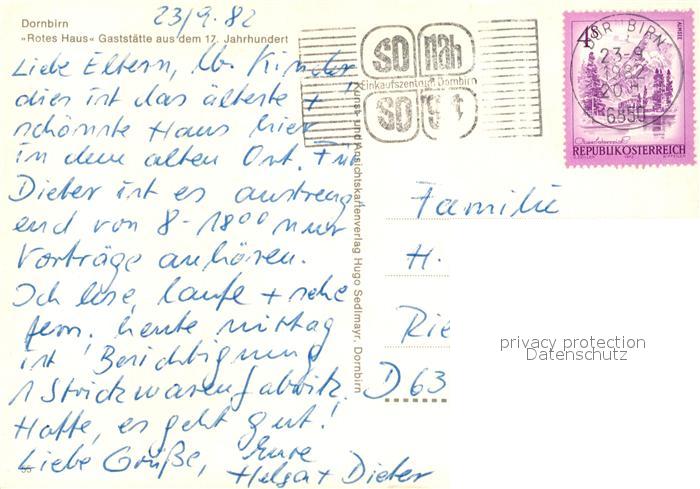 23/9.82
Dornbirn
»Rotes Haus« Gaststätte aus dem 17. Jahrhundert
Liebe Eltern, lb. Kinder,
dies ist das älteste +
schönste Haus hier
in dem alten Ort. Für
Dieter ist es anstreng
end von 8-18⁰⁰ nur
Vorträge anhören.
Ich lese, laufe + sehe
fern. heute mittag
ist Besichtigung
1 Strickwarenfabrik.
Hoffe, es geht gut!
Liebe Grüße, Eure
Helga + Dieter
55
Kunst- und Ansichtskartenverlag Hugo Sedlmayr, Dornbirn
so nah
Einkaufszentrum Dornbirn
so gut
DORNBIRN
23-9
1982
6850
4S
ALMSEE
REPUBLIK ÖSTERREICH
Familie
H.
Rie
D 63
privacy protection
Datenschutz